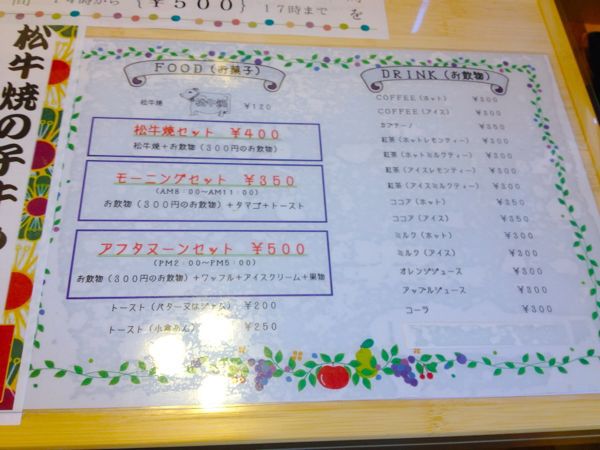 14時から {¥500} 17時まで を
松牛焼の子牛
FOOD (お菓子)
松牛焼 松牛焼 ¥120
松牛焼セット ¥400
松牛焼+お飲物(300円のお飲物)
モーニングセット ¥350
(AM8:00〜AM11:00)
お飲物(300円のお飲物)+タマゴ+トースト
アフタヌーンセット ¥500
(PM2:00〜PM5:00)
お飲物(300円のお飲物)+ワッフル+アイスクリーム+果物
トースト(バター又はジャム) ¥200
トースト(小倉あん) ¥250
DRINK (お飲物)
COFFEE(ホット) ¥300
COFFEE(アイス) ¥300
カプチーノ ¥350
紅茶(ホットレモンティー) ¥300
紅茶(ホットミルクティー) ¥300
紅茶(アイスレモンティー) ¥300
紅茶(アイスミルクティー) ¥300
ココア(ホット) ¥350
ココア(アイス) ¥350
ミルク(ホット) ¥300
ミルク(アイス) ¥300
オレンジジュース ¥300
アップルジュース ¥300
コーラ ¥300